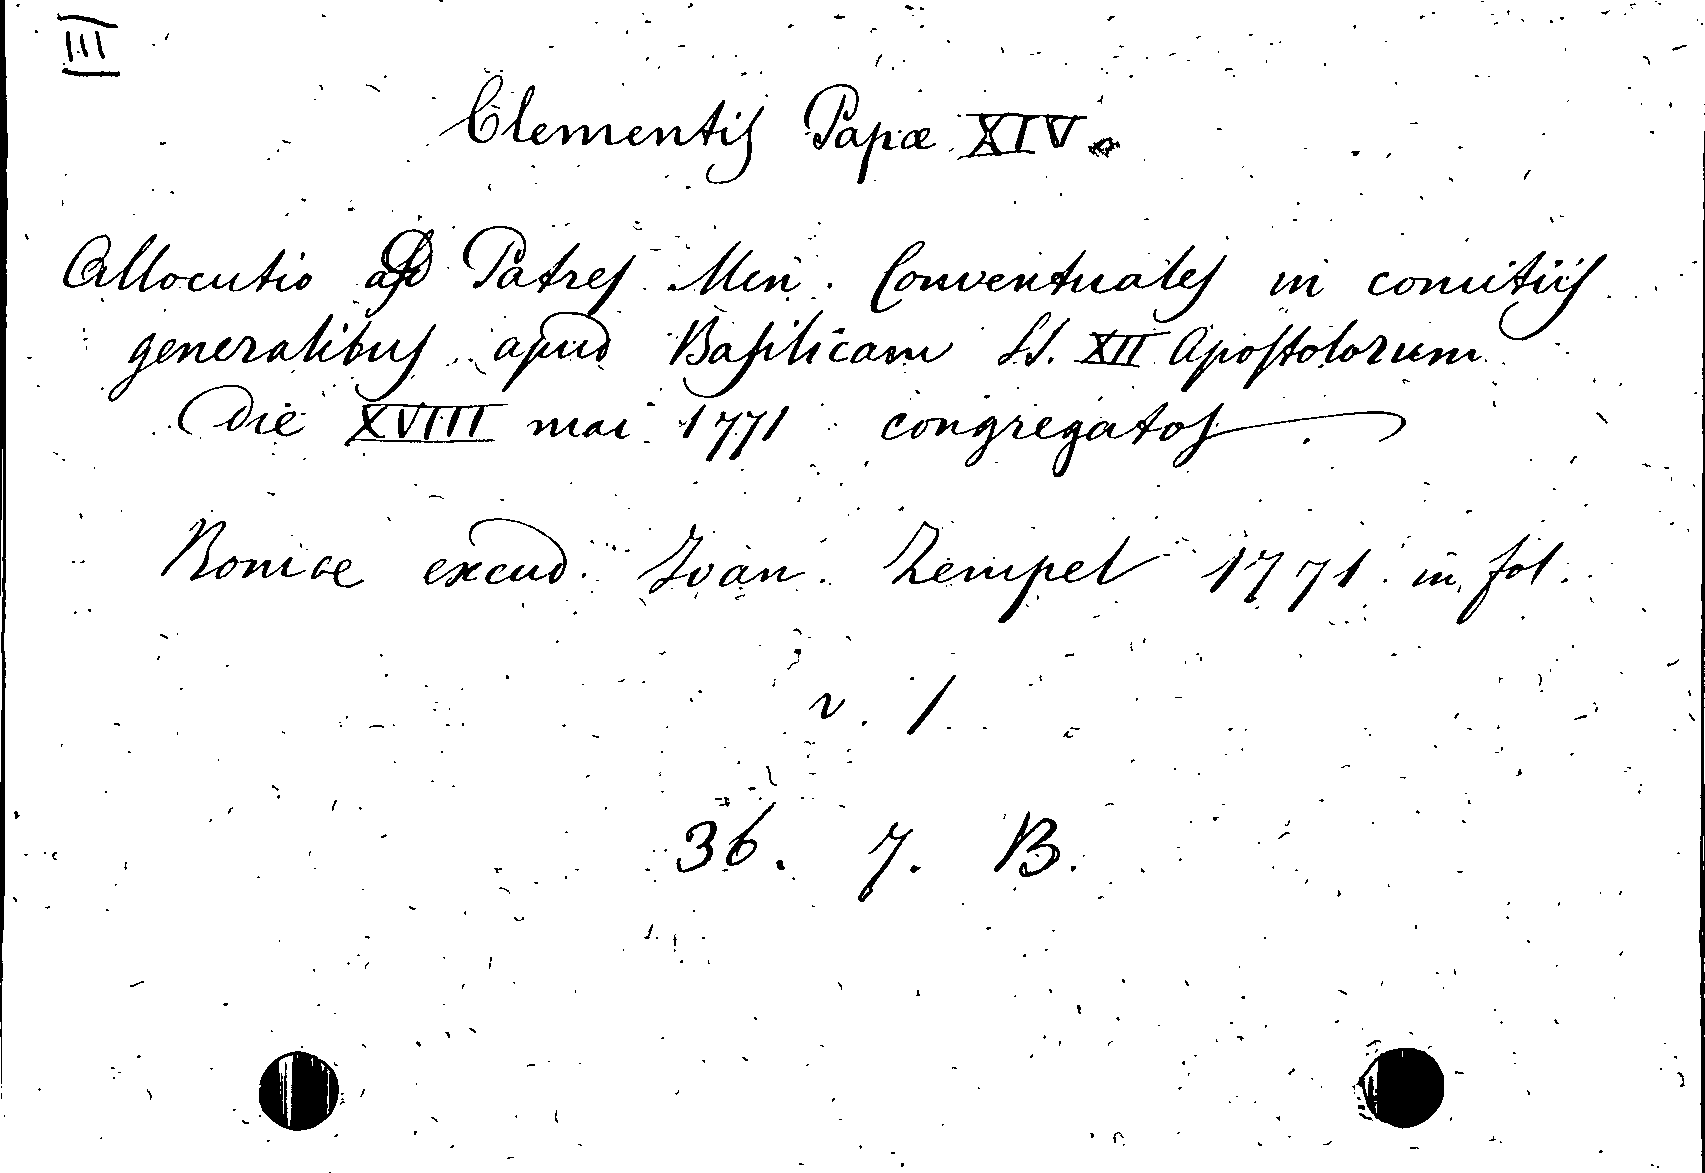 III
Clementis Papæ XIV.
Allocutio ad Patres Min. Conventuales in comitiis
generalibus apud Basilicam SS. XII Apostolorum
die XVIII mai 1771 congregatos
Romae excud. Ioan. Zempel 1771 in fol.
v. 1
36. 7. B.